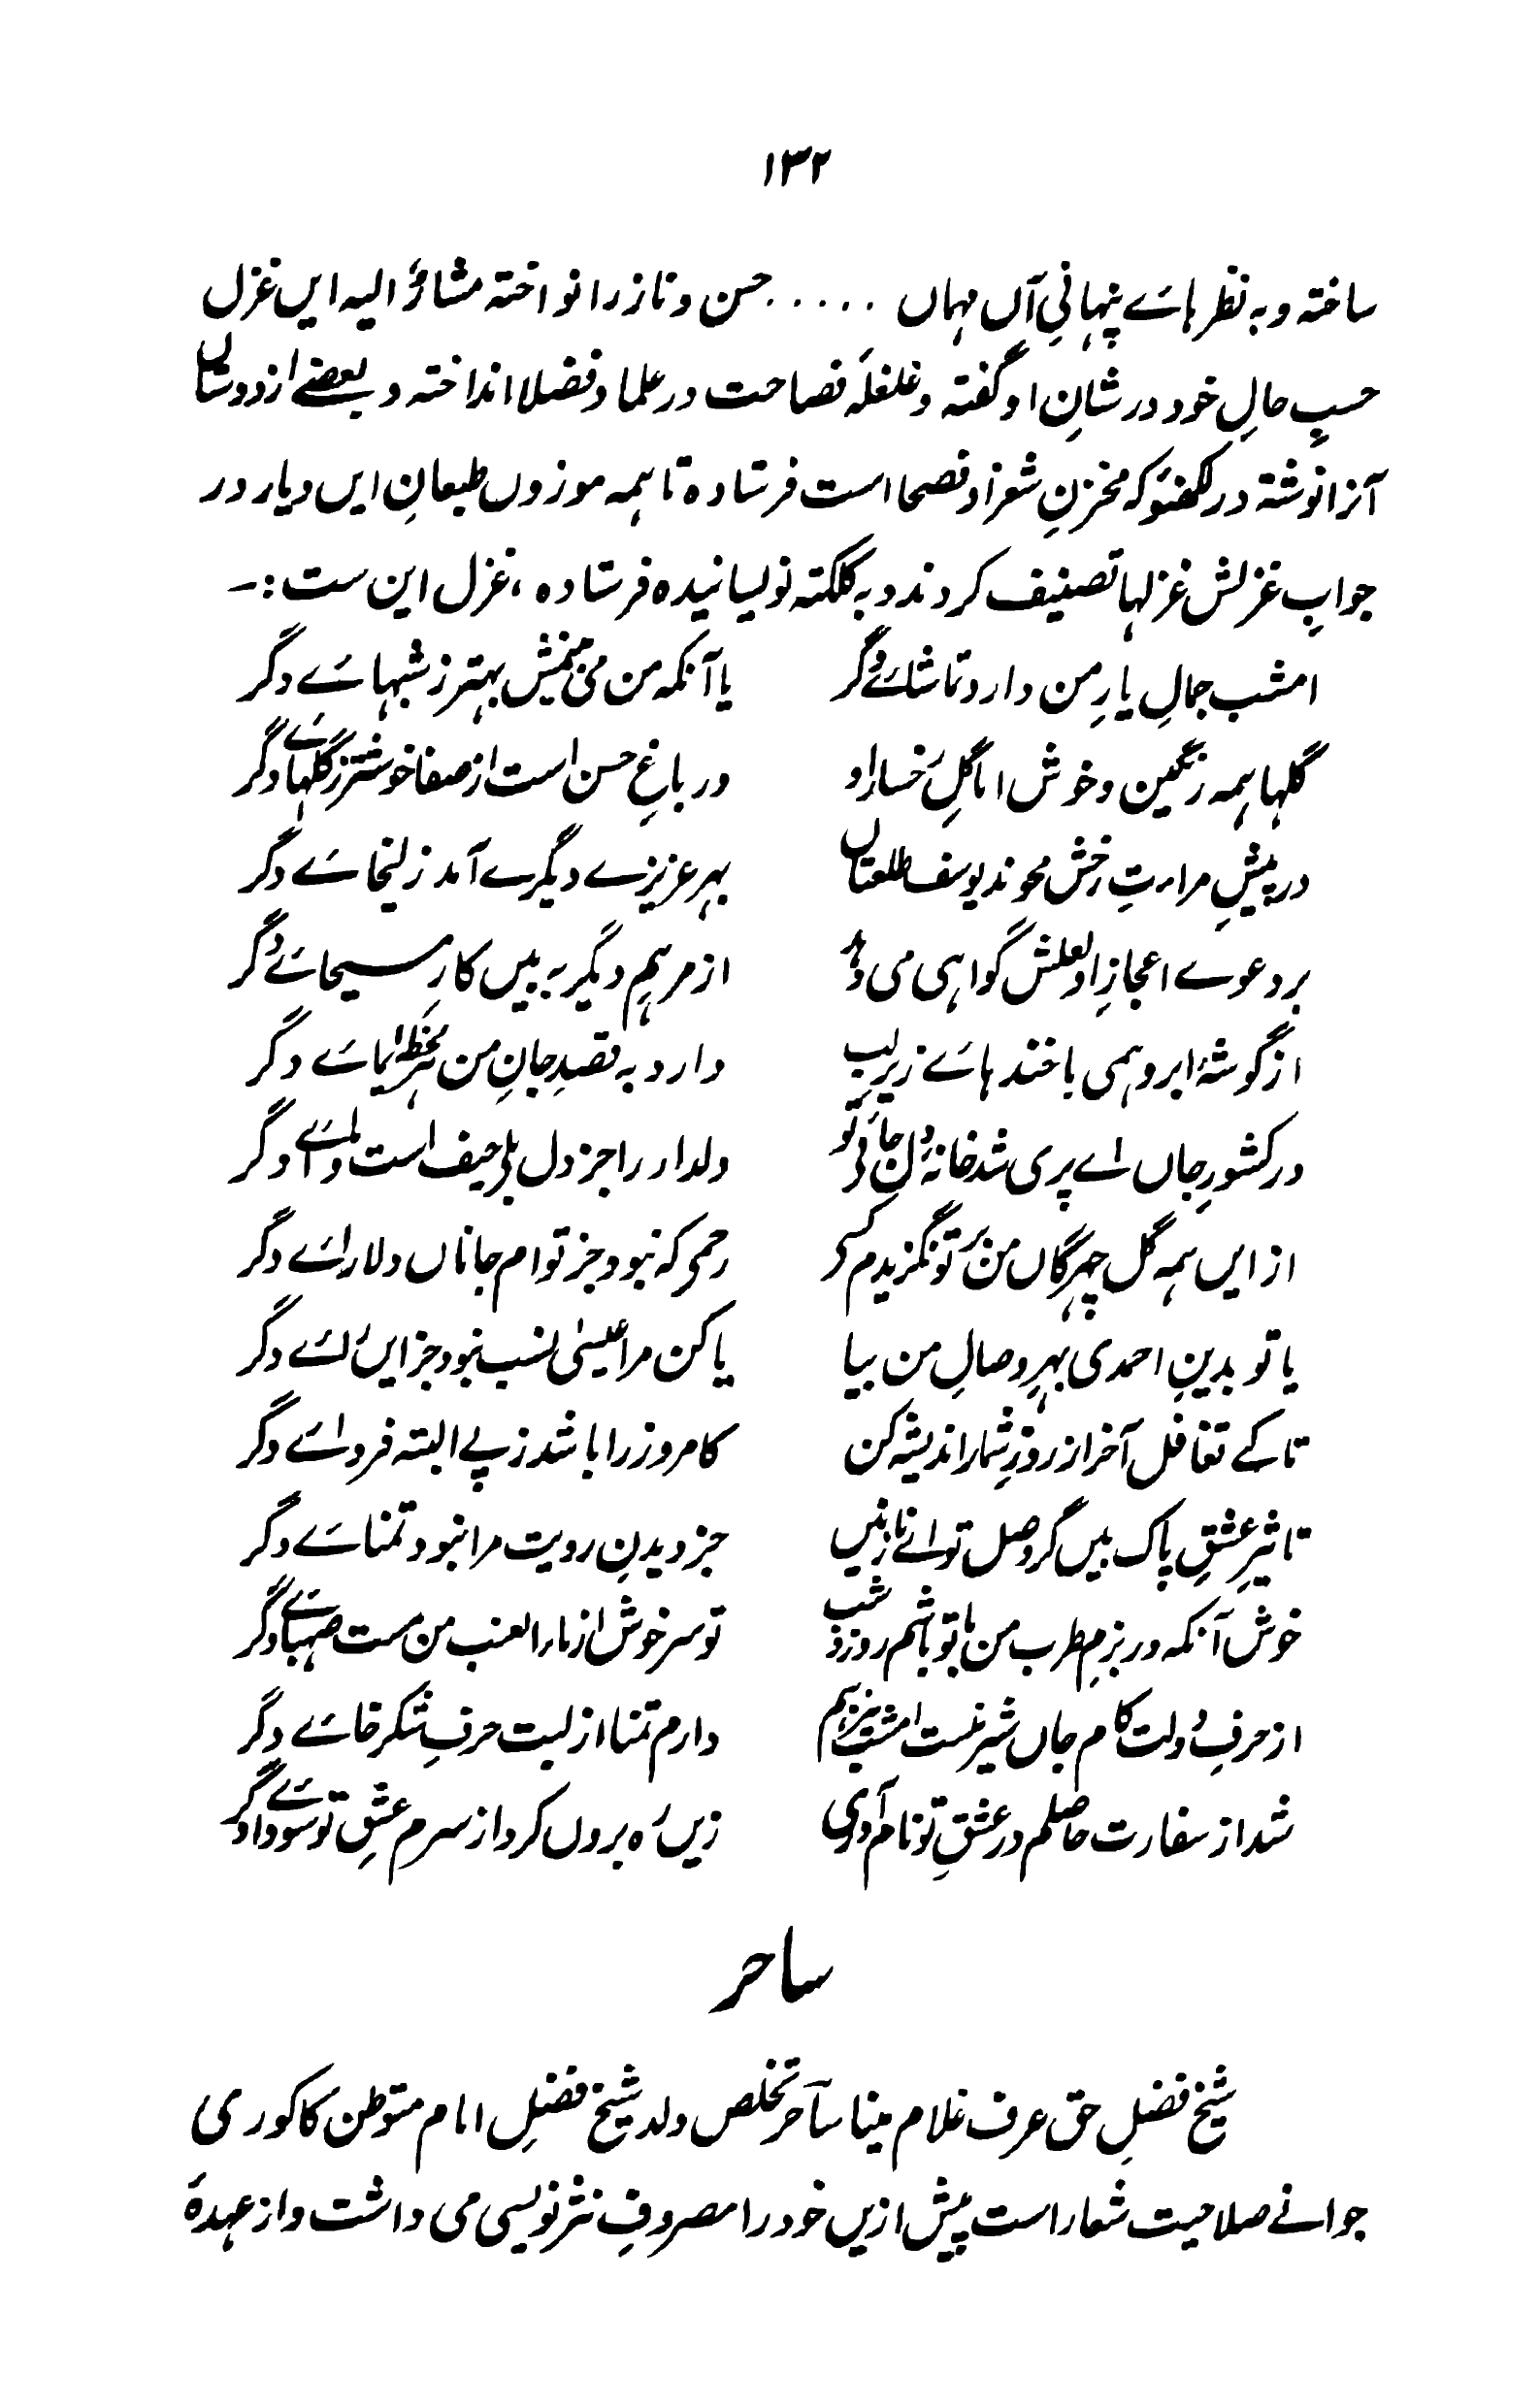 ۱۳۲
ساختہ و بہ نظرہاے پنہانیِ آں مہاں ..... حسن و ناز را نواختہ مشارٌ الیہ ایں غزل
حسبِ حالِ خود در شانِ او گفتہ و غلغلۂ فصاحت در علما و فضلا انداختہ و بعضے از دوستاں
آنرا نوشتہ در لکھنؤ کہ مخزنِ شعرا و فصحا است فرستادہ تا ہمہ موزوں طبعانِ ایں دیار در
جوابِ غزلش غزلہا تصنیف کردند و بہ کلکتہ نویسانیدہ فرستادہ، غزل این ست :-
امشب جمالِ یارِ من دارد تماشائے دگر یا آنکہ من می بینمش بہتر ز شبہاے دگر
گلہا ہمہ رنگین و خوش اما گلِ رخسارِ او در باغِ حسن است از صفا خوشتر ز گلہاے دگر
در پیشِ مراٰتِ رخش محوند یوسف طلعتاں بہر عزیزے دیگرے آمد زلیخاے دگر
بر دعوے اعجازِ او لعلش گواہی می دہد از مرہمِ دیگر بہ بیں کارِ مسیحائے دگر
از گوشۂ ابرو ہمی با خندہاے زیرِ لب دارد بہ قصدِ جانِ من ہر لحظہ ایماے دگر
در کشورِ جاں اے پری شد خانۂ دل جائے تو دلدار را جز دل بلے حیف است ماواے دگر
از ایں ہمہ گل چہرگاں من بر تو نگزیدم کسی رحمی کہ نبود جز توام جاناں دلاراے دگر
یا تو بدینِ احمدی بہرِ وصالِ من بیا یا کن مرا عیسیٰ نسب نبود جز ایں رائے دگر
تا کے تغافل آخر از روزِ شمار اندیشہ کن کامروز را باشد ز پے البتہ فرداے دگر
تاثیرِ عشقِ پاک بیں گر وصل تو اے نازنیں جز دیدنِ رویت مرا نبود تمناے دگر
خوش آنکہ در بزمِ طرب من با تو باشم روز و شب تو سرخوش از ماء العنب من مست صہباے دگر
از حرفِ دلت کام جاں شیریں ست امشب نیز ہم دارم تمنا از لبت حرفِ شکر خاے دگر
شد از سفارت حاصلم در عشقِ تو نام آوری زیں رہ بروں کرد از سرم عشقِ تو سوداے دگر
ساحر
شیخ فضلِ حق عرف غلام مینا ساحر تخلص ولد شیخ فضلِ امام متوطن کاکوری
جوانے صلاحیت شعار است پیش ازیں خود را مصروفِ نثر نویسی می داشت و از عہدۂ